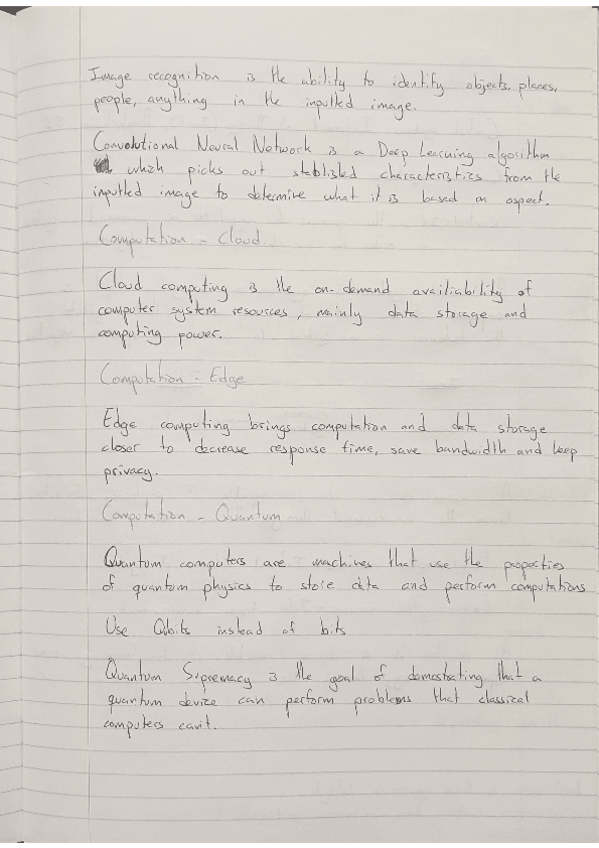 Image recognition is the ability to identify objects, places,
people, anything in the inputted image.
Convolutional Neural Network is a Deep Learning algorithm
which picks out stablizled characteristics from the
inputted image to determine what it is based on aspect.
Computation - Cloud
Cloud computing is the on-demand availiability of
computer system resources, mainly data storage and
computing power.
Computation - Edge
Edge computing brings computation and data storage
closer to decrease response time, save bandwidth and keep
privacy.
Computation - Quantum
Quantum computers are machines that use the properties
of quantum physics to store data and perform computations
Use Qbits instead of bits
Quantum Supremacy is the goal of domostrating that a
quantum device can perform problems that classical
computers can't.